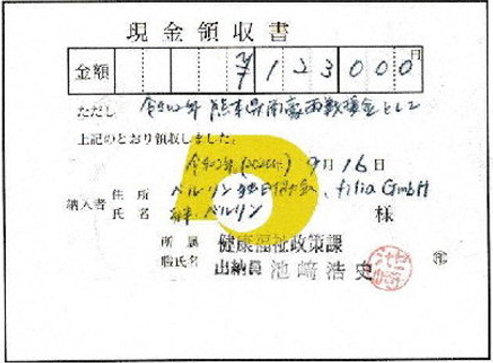 現金領収書
金額 ¥123000円
ただし 令和2年 熊本県南豪雨義援金として
上記のとおり領収しました。
令和2年(2020年) 9月16日
納入者 住所 ベルリン独日協会、filia GmbH
氏名 ベルリン 様
所属 健康福祉政策課
職氏名 出納員 池﨑浩史 ㊞